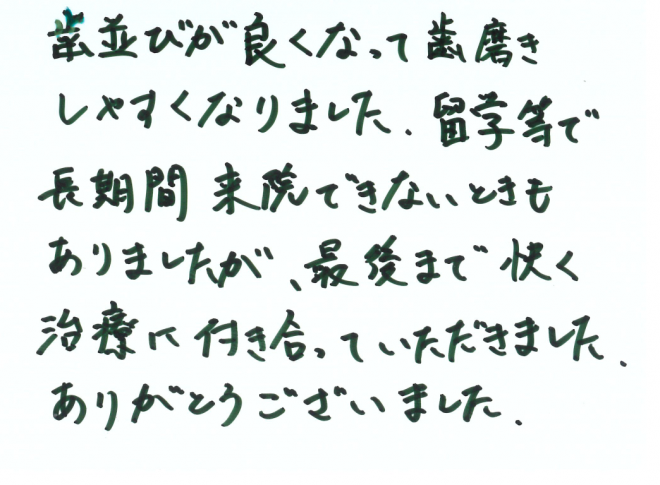 歯並びが良くなって歯磨き
しやすくなりました. 留学等で
長期間来院できないときも
ありましたが、最後まで快く
治療に付き合っていただきました.
ありがとうございました.